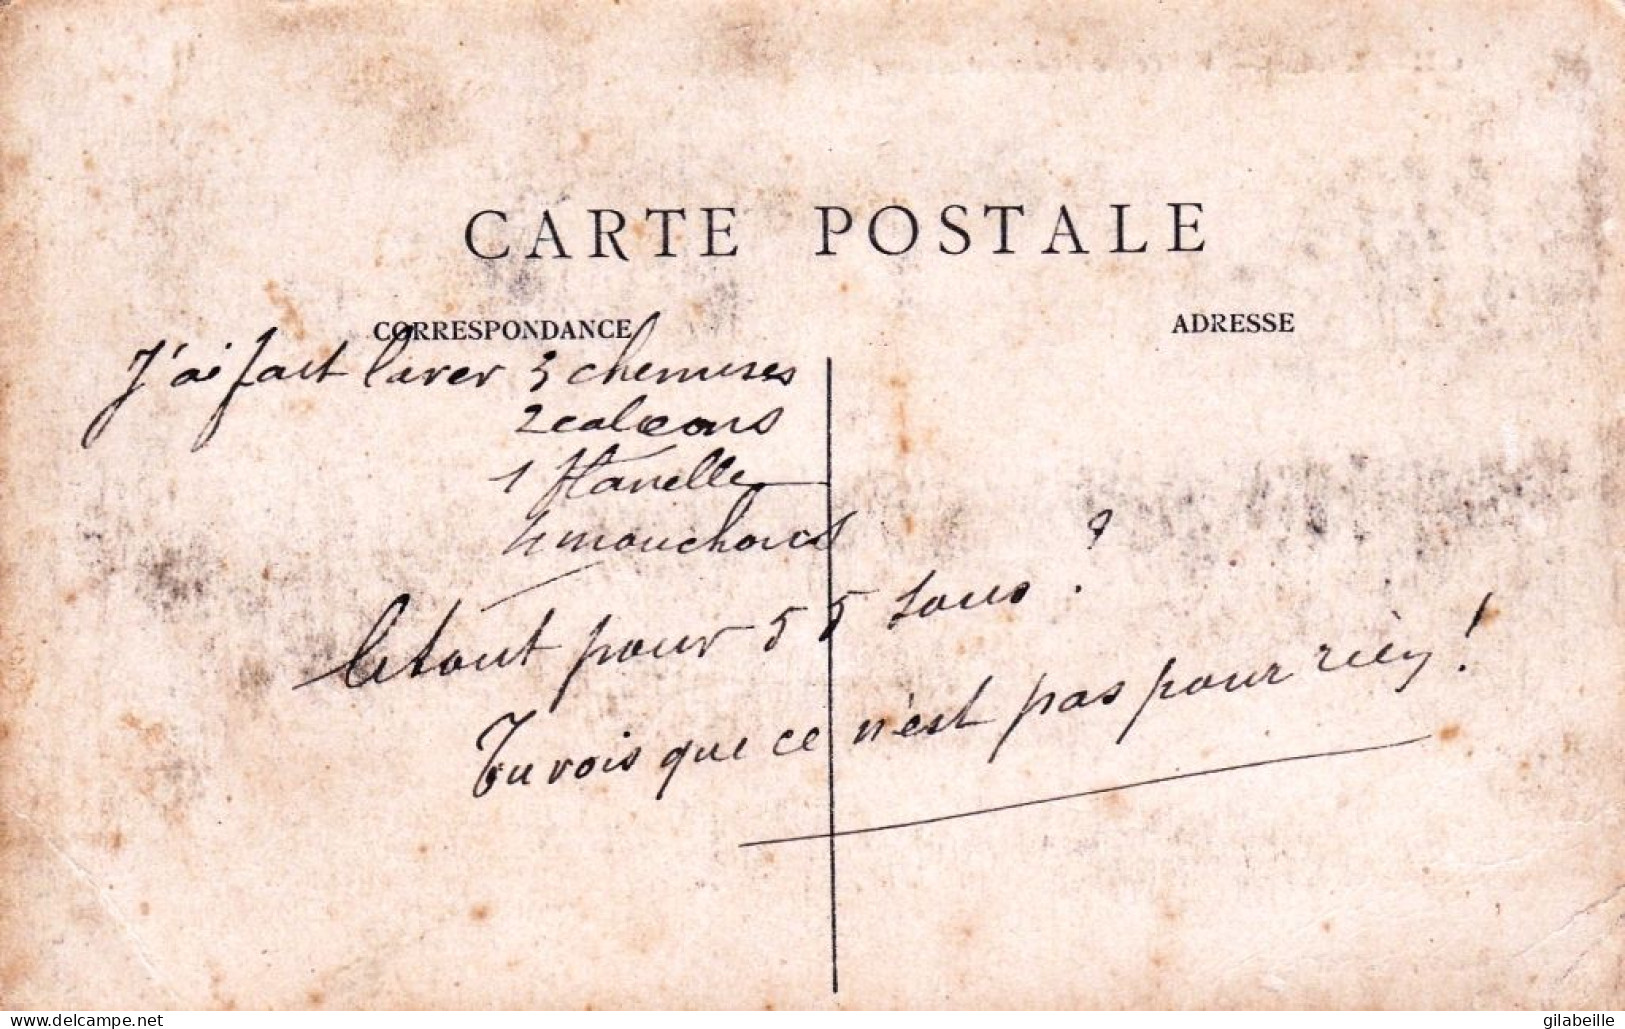 CARTE POSTALE
CORRESPONDANCE
ADRESSE
J'ai fait laver 3 chemises
2 caleçons
1 flanelle
4 mouchoirs
le tout pour 55 sous ?
Tu vois que ce n'est pas pour rien !
delcampe.net
gilabeille